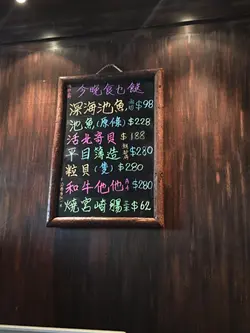 今晚食乜餸
深海池魚 $98
池魚(原條) $228
活北寄貝 $188
平目薄造 $280
粒貝(隻) $280
和牛他他 $280
燒宮崎腸 $62